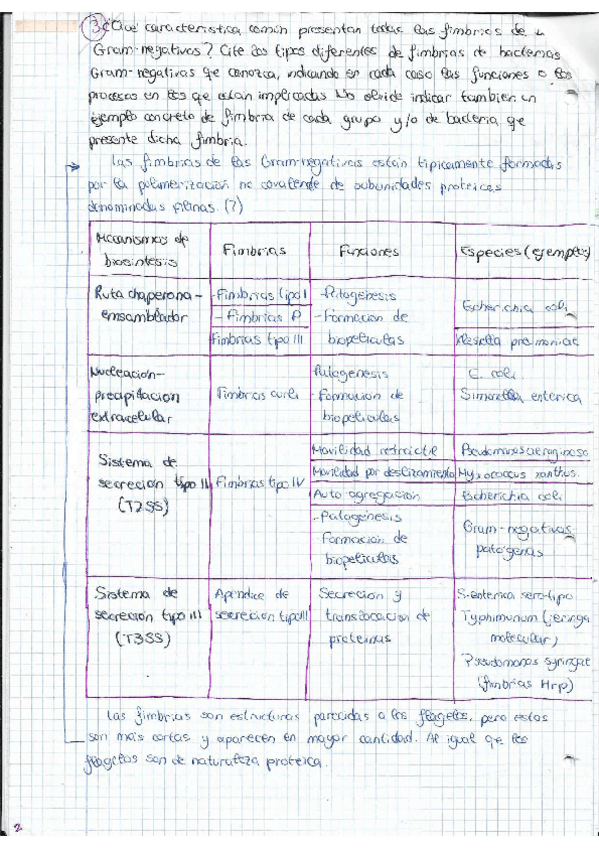 3 ¿Qué característica común presentan todas las fimbrias de
Gram-negativas? Cite los tipos diferentes de fimbrias de bacterias
Gram-negativas que conozca, indicando en cada caso las funciones o los
procesos en los que están implicadas No olvide indicar también un
ejemplo concreto de fimbria de cada grupo y/o de bacteria que
presente dicha fimbria.
Las fimbrias de las Gram-negativas están típicamente formadas
por la polimerización no covalente de subunidades proteicas
denominadas pilinas. (?)
Mecanismos de biosíntesis
Fimbrias
Funciones
Especies (ejemplos)
Ruta chaperona-
ensamblador
-Fimbrias tipo I
-Fimbrias P
Fimbrias tipo III
-Patogénesis
-Formación de
biopelículas
Escherichia coli
pneumoniae
Nucleación-
precipitación
extracelular
Fimbrias curli
Patogénesis
-Formación de
biopelículas
E. coli
enterica
Sistema de
secreción tipo II
(T2SS)
Fimbrias tipo IV
Movilidad retráctil
Pseudomonas aeruginosa
Movilidad por deslizamiento
Myxococcus xanthus.
Auto agregación
Escherichia coli
-Patogénesis
Formación de
biopelículas
Gram-negativas
patógenas
Sistema de
secreción tipo III
(T3SS)
Apéndice de
secreción tipo III
Secreción y
translocación de
proteínas
S. enterica serotipo
Typhimurium (jeringa
molecular)
Pseudomonas syringae
(fimbrias Hrp)
Las fimbrias son estructuras parecidas a los flagelos, pero estas
son más cortas y aparecen en mayor cantidad. Al igual que los
flagelos son de naturaleza proteica.
2